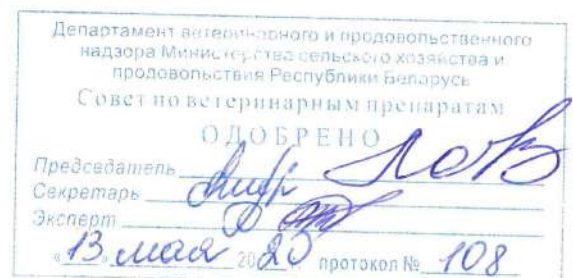 Департамент ветеринарного и продовольственного
надзора Министерства сельского хозяйства и
продовольствия Республики Беларусь
Совет по ветеринарным препаратам
ОДОБРЕНО
Председатель
Секретарь
Эксперт
«13» мая 2020 г. протокол № 108